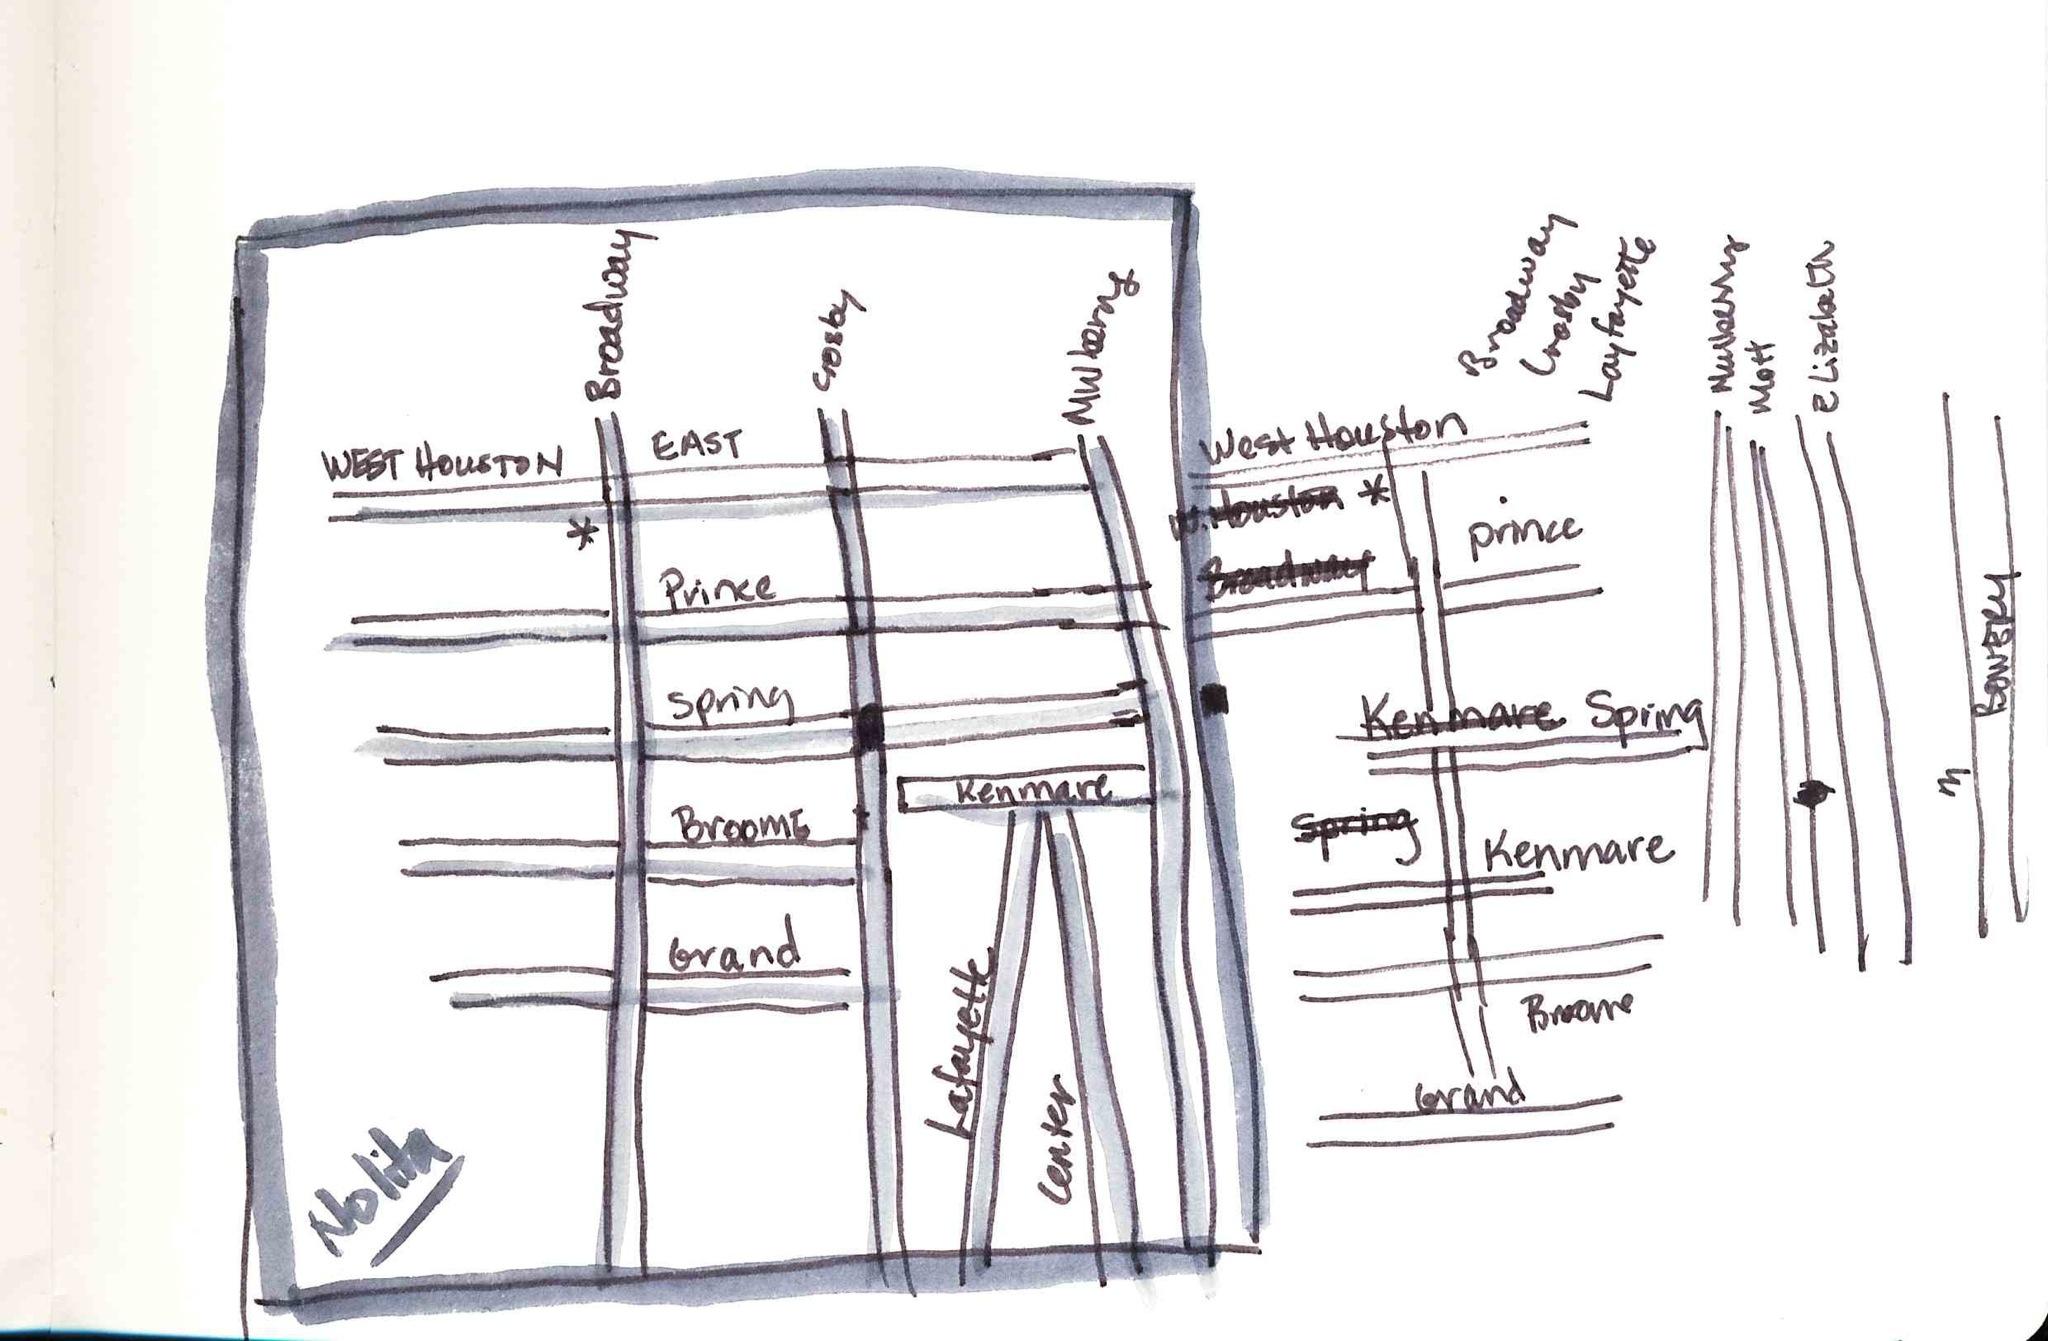 Broadway
Crosby
Mulberry
WEST HOUSTON
EAST
*
Prince
Spring
Kenmare
Broome
Grand
Lafayette
Center
Nolita
Broadway
Crosby
Layfayette
Mulberry
Mott
elizabeth
West Houston
W. Houston *
Broadway
prince
Kenmare Spring
Spring
Kenmare
Broome
Grand
BOWERY